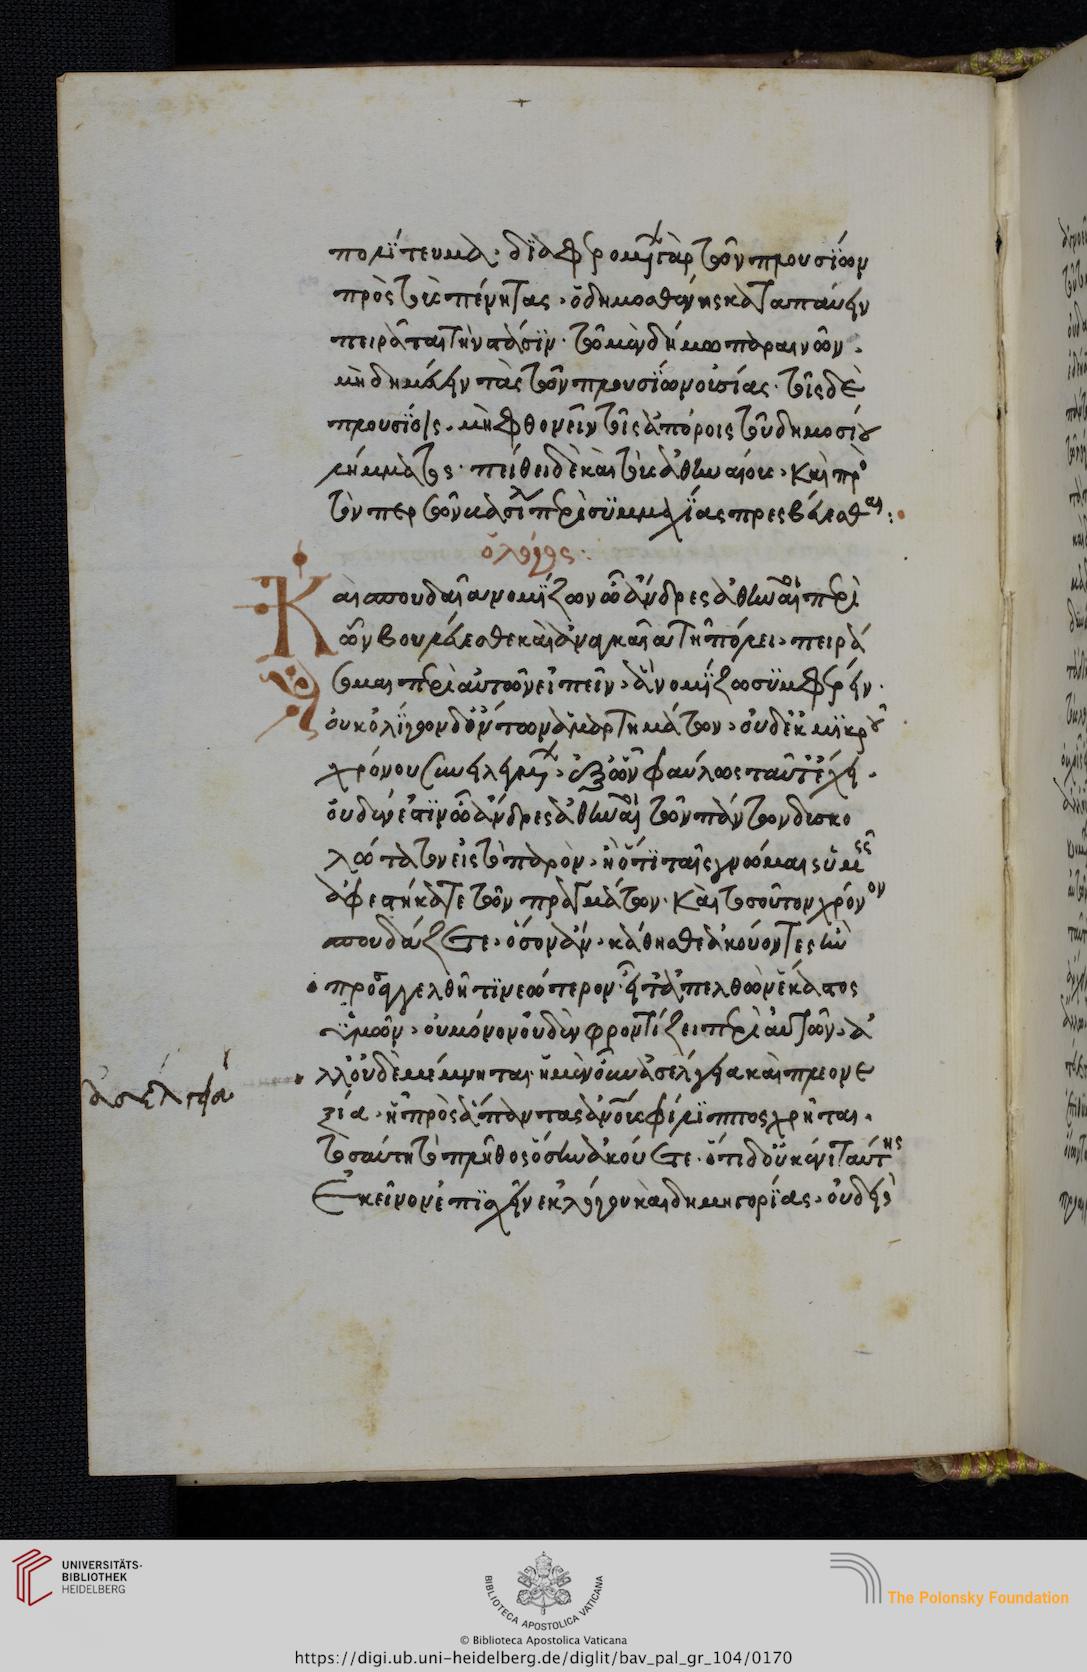 πολίτευμα· διαφερομένων γὰρ τῶν πλουσίων
πρὸς τοὺς πένητας, ὁ δημοσθένης καταπαύειν
πειρᾶται τὴν στάσιν· τῷ μὲν δήμῳ παραινῶν,
μὴ δημεύειν τὰς τῶν πλουσίων οὐσίας· τοῖς δὲ
πλουσίοις, μὴ φθονεῖν τοῖς ἀπόροις τοῦ δημοσίου
λήμματος· πείθει δὲ καὶ τοὺς ἀθηναίους, καὶ πρὸς
τὸν περσῶν βασιλέα περὶ συμμαχίας πρεσβεύεσθαι:
ὁ λόγος:
Καὶ σπουδαῖα νομίζων ὦ ἄνδρες ἀθηναῖοι περὶ
ὧν βουλεύεσθε καὶ ἀναγκαῖα τῇ πόλει, πειρά
σομαι περὶ αὐτῶν εἰπεῖν, ἃ νομίζω συμφέρειν·
οὐκ ὀλίγων δ' ὄντων ἁμαρτημάτων, οὐδ' ἐκ μικροῦ
χρόνου συνειλεγμένων, ἐξ ὧν φαύλως ταῦτ' ἔχει,
οὐδέν ἐστιν ὦ ἄνδρες ἀθηναῖοι τῶν πάντων δυσκο
λώτατον εἰς τὸ παρὸν, ἢ ὅτι ταῖς γνώμαις ὑμεῖς
ἀφεστήκατε τῶν πραγμάτων· καὶ τοσοῦτον χρόνον
σπουδάζετε, ὅσον ἂν, κάθησθε ἀκούοντες ἢν
προσαγγελθῇ τι νεώτερον· εἶτ' ἀπελθὼν ἕκαστος
ὑμῶν, οὐ μόνον οὐδὲν φροντίζει περὶ αὐτῶν, ἀ
λλ' οὐδὲ μέμνηται, ἡ μὲν οὖν ἀσέλγεια καὶ πλεονε
ξία, ᾗ πρὸς ἅπαντας ἀνους φίλιππος χρῆται,
τοσαύτη τὸ πλῆθος ὅσην ἀκούετε· ὅτι δ' οὐκ ἔνι ταύτης
Ἐκεῖνον ἐπισχεῖν ἐκ λόγου καὶ δημηγορίας, οὐδεὶς
ἀσέλγεια
UNIVERSITÄTS-
BIBLIOTHEK
HEIDELBERG
BIBLIOTECA APOSTOLICA VATICANA
The Polonsky Foundation
© Biblioteca Apostolica Vaticana
https://digi.ub.uni-heidelberg.de/diglit/bav_pal_gr_104/0170